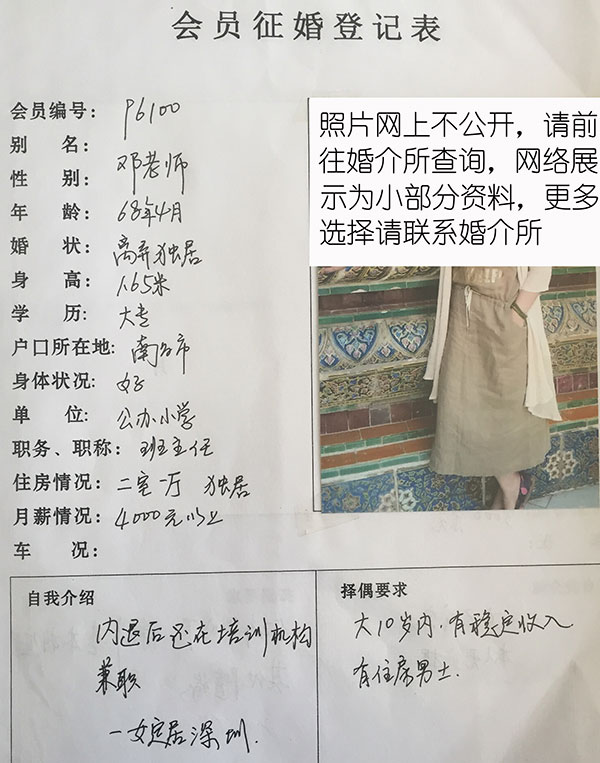 会员征婚登记表
会员编号: P6100
别 名: 邓老师
性 别:
年 龄: 68年4月
婚 状: 离异独居
身 高: 1.65米
学 历: 大专
户口所在地: 南昌市
身体状况: 好
单 位: 公办小学
职务、职称: 班主任
住房情况: 二室一厅 独居
月薪情况: 4000元以上
车 况:
照片网上不公开，请前
往婚介所查询，网络展
示为小部分资料，更多
选择请联系婚介所
自我介绍
内退后还在培训机构
兼职
一女定居深圳.
择偶要求
大10岁内.有稳定收入
有住房男士.